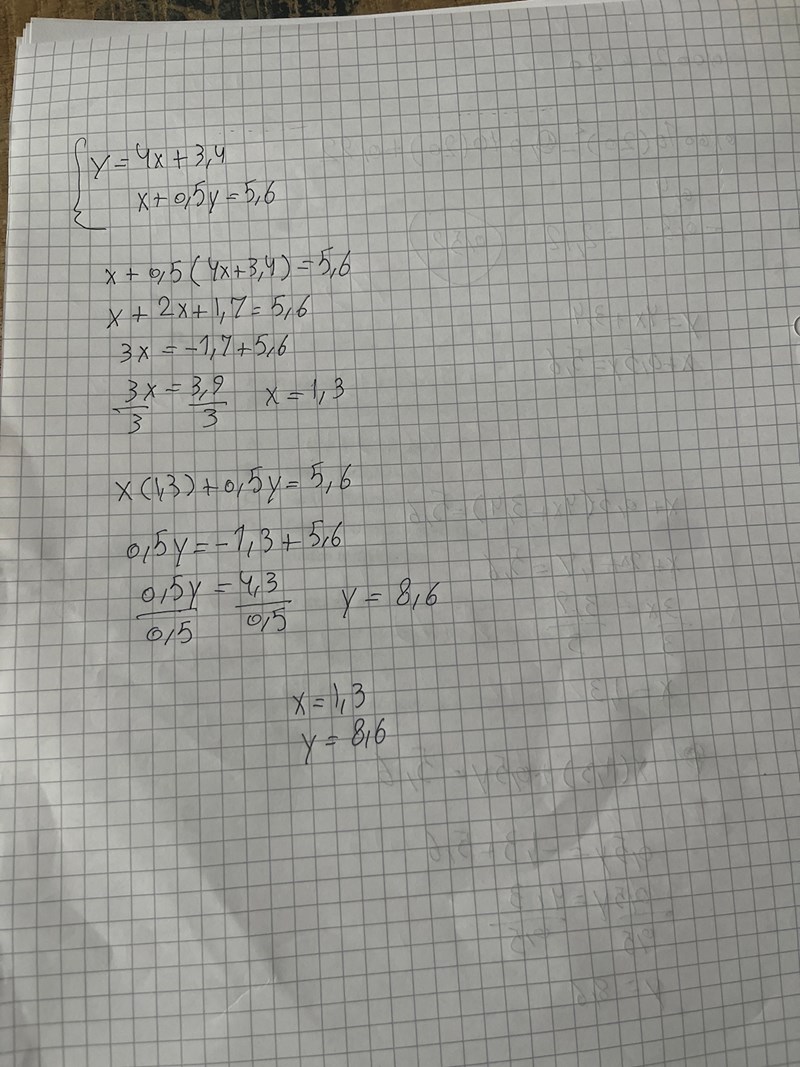 y = 4x + 3,4
x + 0,5y = 5,6
x + 0,5(4x+3,4) = 5,6
x + 2x + 1,7 = 5,6
3x = -1,7 + 5,6
3x/3 = 3,9/3 x = 1,3
x(1,3) + 0,5y = 5,6
0,5y = -1,3 + 5,6
0,5y/0,5 = 4,3/0,5 y = 8,6
x = 1,3
y = 8,6